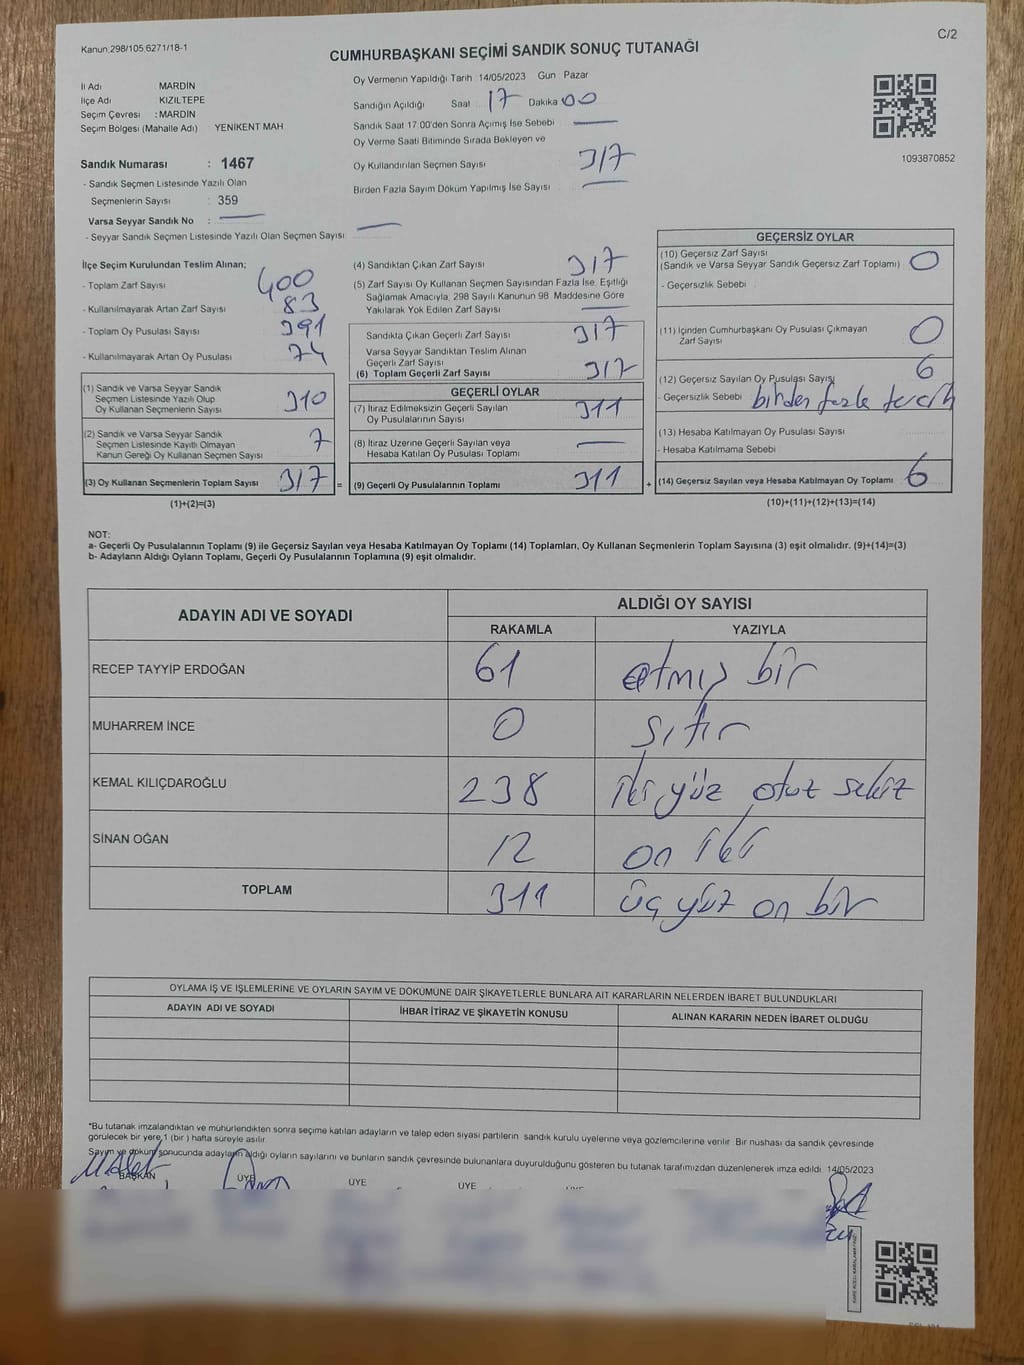 Kanun.298/105.6271/18-1
C/2
CUMHURBAŞKANI SEÇİMİ SANDIK SONUÇ TUTANAĞI
İl Adı MARDİN
İlçe Adı KIZILTEPE
Seçim Çevresi : MARDİN
Seçim Bölgesi (Mahalle Adı) YENİKENT MAH
Sandık Numarası : 1467
- Sandık Seçmen Listesinde Yazılı Olan
Seçmenlerin Sayısı : 359
Varsa Seyyar Sandık No : —
- Seyyar Sandık Seçmen Listesinde Yazılı Olan Seçmen Sayısı —
Oy Vermenin Yapıldığı Tarih 14/05/2023 Gün Pazar
Sandığın Açıldığı Saat 17 Dakika 00
Sandık Saat 17.00'den Sonra Açımış İse Sebebi —
Oy Verme Saati Bitiminde Sırada Bekleyen ve
Oy Kullandırılan Seçmen Sayısı 317
Birden Fazla Sayım Döküm Yapılmış İse Sayısı —
1093870852
İlçe Seçim Kurulundan Teslim Alınan;
- Toplam Zarf Sayısı 400
- Kullanılmayarak Artan Zarf Sayısı 83
- Toplam Oy Pusulası Sayısı 391
- Kullanılmayarak Artan Oy Pusulası 74
(1) Sandık ve Varsa Seyyar Sandık
Seçmen Listesinde Yazılı Olup
Oy Kullanan Seçmenlerin Sayısı 310
(2) Sandık ve Varsa Seyyar Sandık
Seçmen Listesinde Kayıtlı Olmayan
Kanun Gereği Oy Kullanan Seçmen Sayısı 7
(3) Oy Kullanan Seçmenlerin Toplam Sayısı 317 =
(1)+(2)=(3)
(4) Sandıktan Çıkan Zarf Sayısı 317
(5) Zarf Sayısı Oy Kullanan Seçmen Sayısından Fazla İse, Eşitliği
Sağlamak Amacıyla, 298 Sayılı Kanunun 98. Maddesine Göre
Yakılarak Yok Edilen Zarf Sayısı —
Sandıkta Çıkan Geçerli Zarf Sayısı 317
Varsa Seyyar Sandıktan Teslim Alınan
Geçerli Zarf Sayısı
(6) Toplam Geçerli Zarf Sayısı 317
GEÇERLİ OYLAR
(7) İtiraz Edilmeksizin Geçerli Sayılan
Oy Pusulalarının Sayısı 311
(8) İtiraz Üzerine Geçerli Sayılan veya
Hesaba Katılan Oy Pusulası Toplamı —
(9) Geçerli Oy Pusulalarının Toplamı 311 +
GEÇERSİZ OYLAR
(10) Geçersiz Zarf Sayısı
(Sandık ve Varsa Seyyar Sandık Geçersiz Zarf Toplamı) 0
- Geçersizlik Sebebi
(11) İçinden Cumhurbaşkanı Oy Pusulası Çıkmayan
Zarf Sayısı 0
(12) Geçersiz Sayılan Oy Pusulası Sayısı 6
- Geçersizlik Sebebi birden fazla tercih
(13) Hesaba Katılmayan Oy Pusulası Sayısı
- Hesaba Katılmama Sebebi
(14) Geçersiz Sayılan veya Hesaba Katılmayan Oy Toplamı 6
(10)+(11)+(12)+(13)=(14)
NOT:
a- Geçerli Oy Pusulalarının Toplamı (9) ile Geçersiz Sayılan veya Hesaba Katılmayan Oy Toplamı (14) Toplamları, Oy Kullanan Seçmenlerin Toplam Sayısına (3) eşit olmalıdır. (9)+(14)=(3)
b- Adayların Aldığı Oyların Toplamı, Geçerli Oy Pusulalarının Toplamına (9) eşit olmalıdır.
ADAYIN ADI VE SOYADI ALDIĞI OY SAYISI
RAKAMLA YAZIYLA
RECEP TAYYİP ERDOĞAN 61 atmış bir
MUHARREM İNCE 0 sıfır
KEMAL KILIÇDAROĞLU 238 iki yüz otuz sekiz
SİNAN OĞAN 12 on iki
TOPLAM 311 üç yüz on bir
OYLAMA İŞ VE İŞLEMLERİNE VE OYLARIN SAYIM VE DÖKÜMÜNE DAİR ŞİKAYETLERLE BUNLARA AİT KARARLARIN NELERDEN İBARET BULUNDUKLARI
ADAYIN ADI VE SOYADI İHBAR İTİRAZ VE ŞİKAYETİN KONUSU ALINAN KARARIN NEDEN İBARET OLDUĞU
"Bu tutanak imzalandıktan ve mühürlendikten sonra seçime katılan adayların ve talep eden siyasi partilerin sandık kurulu üyelerine veya gözlemcilerine verilir. Bir nüshası da sandık çevresinde
görülecek bir yere 1 (bir) hafta süreyle asılır.
Sayım ve döküm sonucunda adayların aldığı oyların sayılarını ve bunların sandık çevresinde bulunanlara duyurulduğunu gösteren bu tutanak tarafımızdan düzenlenerek imza edildi. 14/05/2023
BAŞKAN ÜYE ÜYE ÜYE